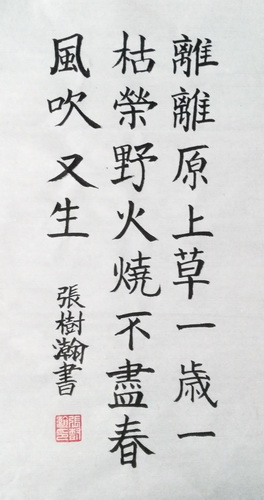 離離原上草一歲一
枯榮野火燒不盡春
風吹又生
張樹瀚書